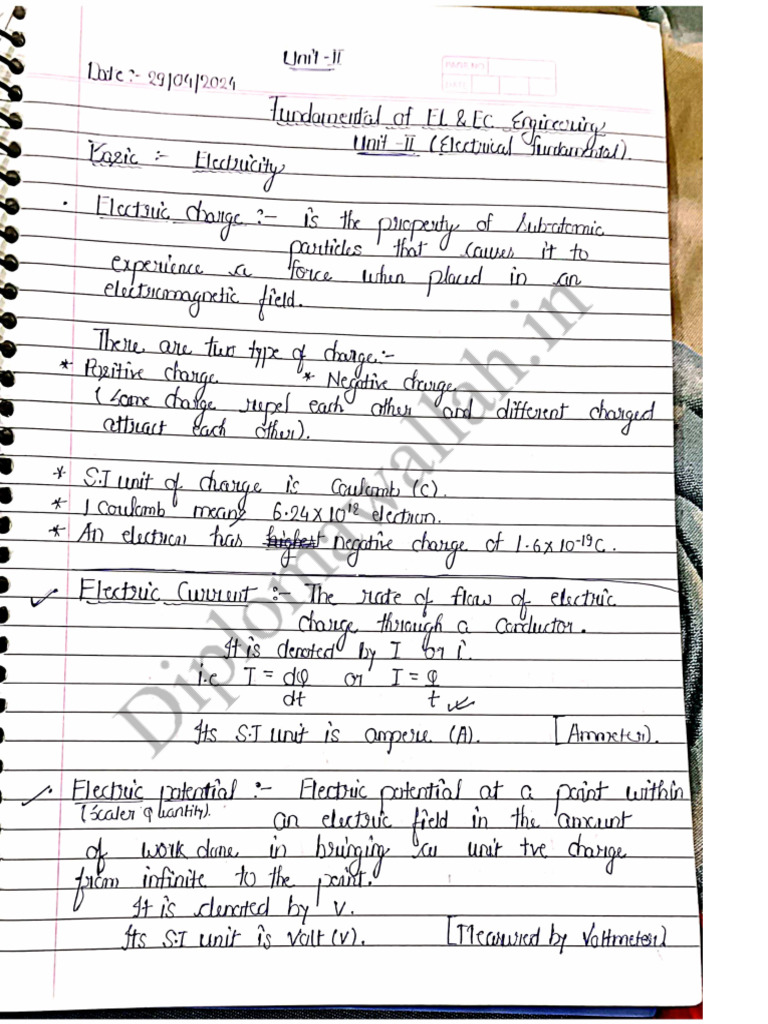 Unit-II
PAGE NO.
DATE
Date:- 29/04/2024
Fundamental of EL & EC Engineering
Unit-II (Electrical fundamental).
Basic :- Electricity
• Electric charge :- is the property of Subatomic
particles that causes it to
experience a force when placed in an
electromagnetic field.
There are two type of charge:-
* Positive charge * Negative charge
(Same charge repel each other and different charged
attract each other).
* S.I unit of charge is Coulomb (C).
* 1 Coulomb means 6.24×10¹⁸ electron.
* An electron has highest negative charge of 1.6×10⁻¹⁹C.
✓ Electric Current :- The rate of flow of electric
charge through a conductor.
It is denoted by I or i.
i.e I = dφ/dt or I = φ/t ✓
Its S.I unit is ampere (A). [Ammeter].
✓ Electric potential :- Electric potential at a point within
(Scaler quantity). an electric field in the amount
of work done in bringing a unit +ve charge
from infinite to the point.
It is denoted by V.
Its S.I unit is Volt (V). [Measured by Voltmeter]
Diplomawallah.in